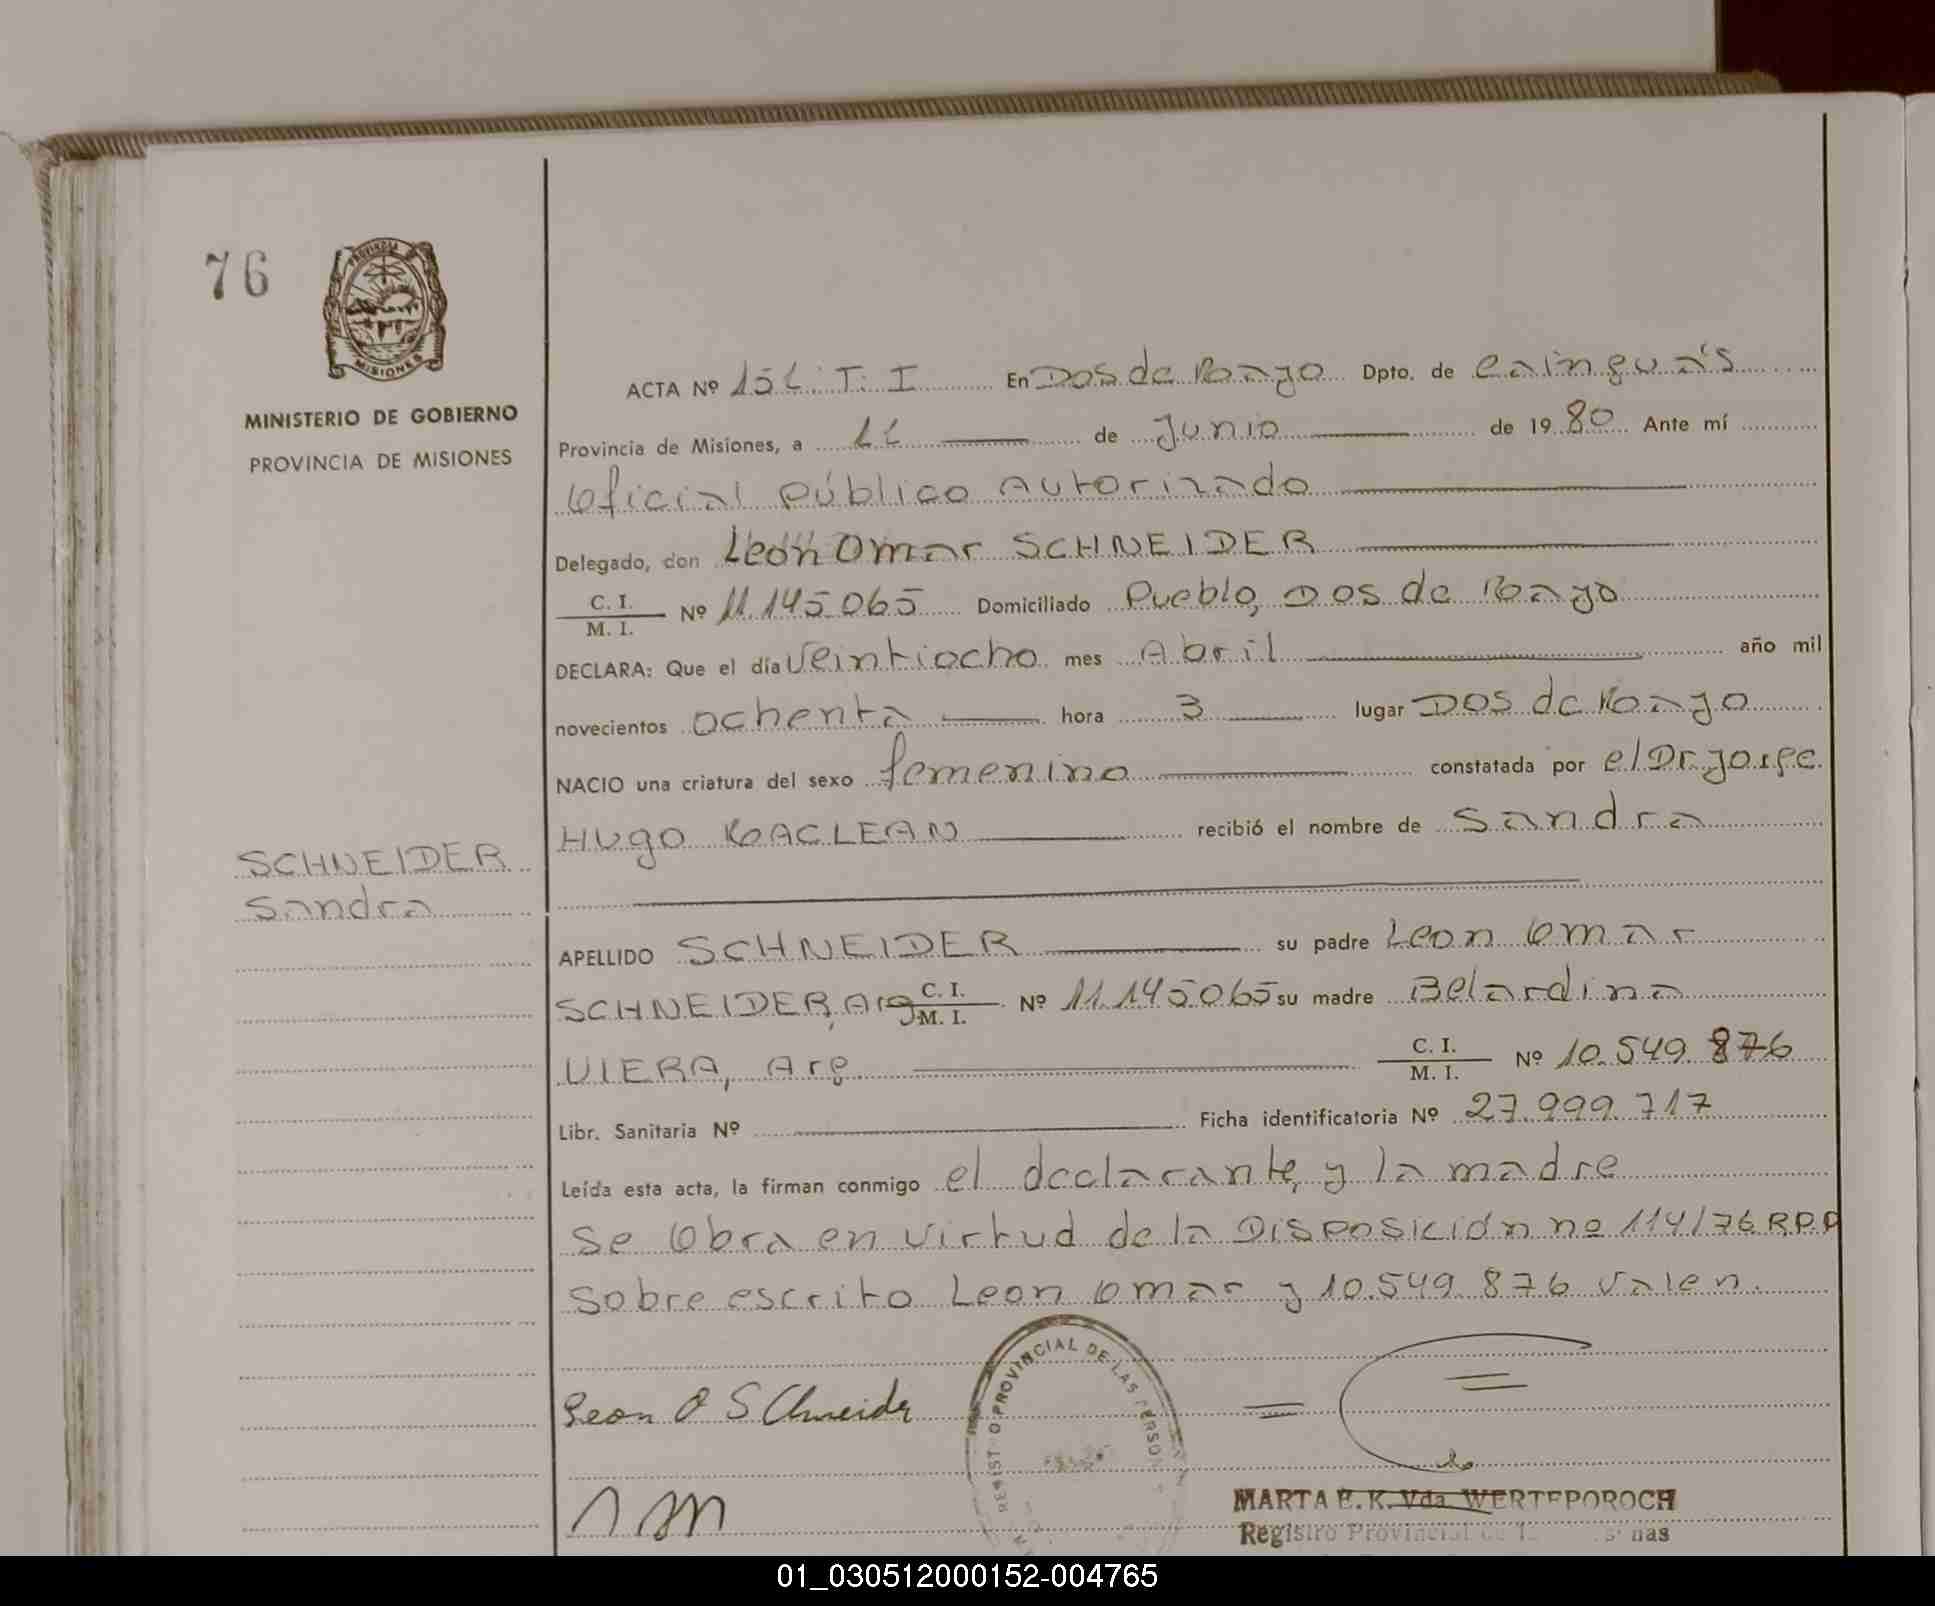 76
PROVINCIA
MISIONES
MINISTERIO DE GOBIERNO
PROVINCIA DE MISIONES
ACTA Nº 151. T. I En Dos de Mayo Dpto. de Cainguás
Provincia de Misiones, a 11 de Junio de 1980 Ante mí
Oficial Público Autorizado
Delegado, don Leon Omar SCHNEIDER
C. I. / M. I. Nº 11.145.065 Domiciliado Pueblo, Dos de Mayo
DECLARA: Que el día Veintiocho mes Abril año mil
novecientos Ochenta hora 3 lugar Dos de Mayo
NACIO una criatura del sexo femenino constatada por el Dr. Jorge
Hugo MACLEAN recibió el nombre de Sandra
SCHNEIDER
Sandra
APELLIDO SCHNEIDER su padre Leon Omar
SCHNEIDER, Arg C. I. / M. I. Nº 11.145.065 su madre Belardina
VIERA, Arg C. I. / M. I. Nº 10.549.876
Libr. Sanitaria Nº Ficha identificatoria Nº 27.999.717
Leída esta acta, la firman conmigo el declarante, y la madre
Se Obra en Virtud de la Disposición nº 114/76 R.P.P
Sobre escrito Leon Omar y 10.549.876 Valen.
REGIST O PROVINCIAL DE LAS PERSON
Leon O Schneider
MARTA E. K. Vda. WERTEPOROCH
Registro Provincial de
01_030512000152-004765